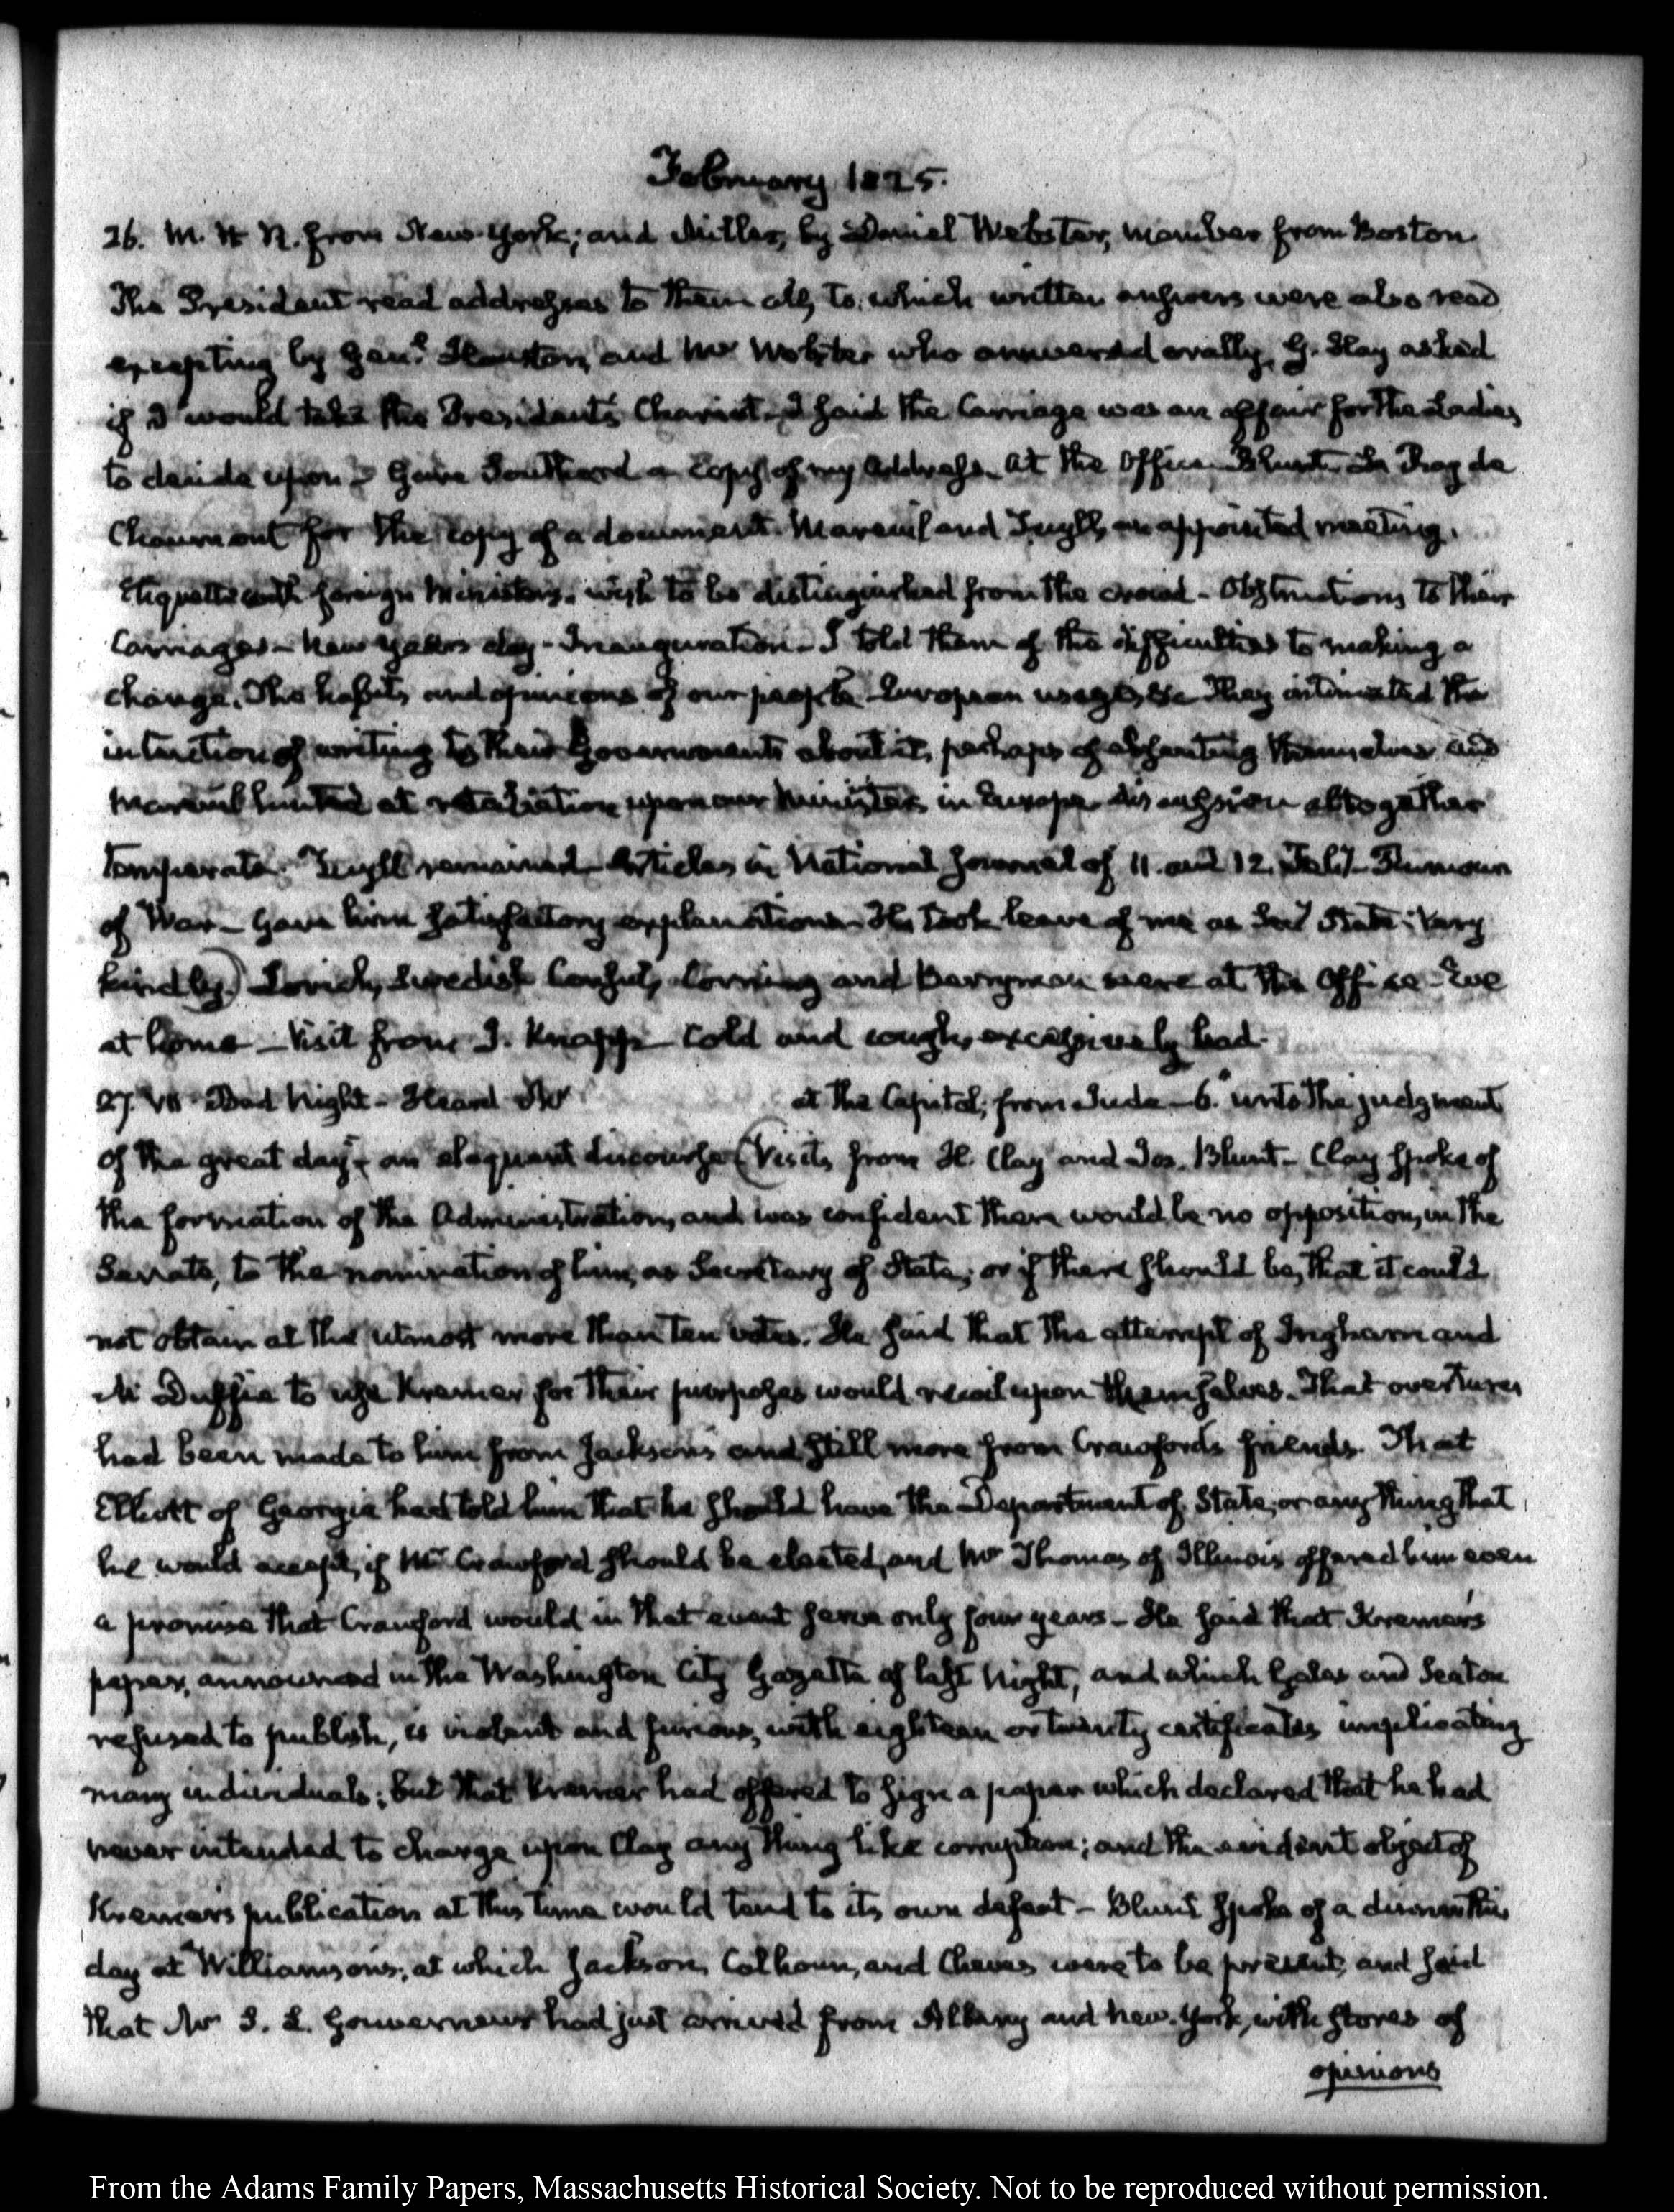 February 1825.
26. from New-York; and Miller, by Daniel Webster, member from Boston.
The President read addresses to them all, to which written answers were also read
excepting by Genl. Houston, and Mr Webster who answered orally. G. Hay asked
if I would take the President's Chariot. I said the Carriage was an affair for the Ladies
to decide upon. Gave Southard a copy of my Address. At the Office Blunt. Le Ray de
Chaumont for the copy of a document. Mareuil and Tuyll, an appointed meeting.
Etiquette with foreign Ministers. wish to be distinguished from the crowd - Obstructions to their
Carriages - New Years day - Inauguration - I told them of the difficulties to making a
change. The habits and opinions of our people European usages, &c They intimated the
intention of writing to their Governments about it, perhaps of absenting themselves and
Mareuil hinted at retaliation upon our Ministers in Europe. discussion altogether
temperate. Tuyll remained Articles in National Journal of 11. and 12. July - Rumours
of War - Gave him satisfactory explanations. He took leave of me as Secy State: very
kindly.) Swedish Consul, Corning and Berryman were at the Office - Eve
at home - Visit from J. Knapp - Cold and cough, excessively bad.
27. VII. Bad Night - Heard Mr at the Capitol; from Jude - 6. "unto the judgment
of the great day" - an eloquent discourse (Visits from H. Clay and Jos. Blunt - Clay spoke of
the formation of the Administration, and was confident there would be no opposition, in the
Senate, to the nomination of him, as Secretary of State; or if there should be, that it could
not obtain at the utmost more than ten votes. He said that the attempt of Ingham and
McDuffie to use Kremer for their purposes would recoil upon themselves. That overtures
had been made to him from Jackson's and still more from Crawford's friends. That
Elliott of Georgia had told him that he should have the Department of State, or any thing that
he would accept, if Mr Crawford should be elected, and Mr Thomas of Illinois offered him even
a promise that Crawford would in that event serve only four years - He said that Kremer's
paper, announced in the Washington City Gazette of last Night, and which Gales and Seaton
refused to publish, is violent and furious, with eighteen or twenty certificates implicating
many individuals; but that Kremer had offered to sign a paper which declared that he had
never intended to charge upon Clay any thing like corruption; and the evident object of
Kremer's publication at this time would tend to its own defeat - Blunt spoke of a dinner this
day at Williamson's, at which Jackson, Calhoun, and Cheves were to be present, and said
that Mr S. L. Gouverneur had just arrived from Albany and New-York, with stores of
opinions
From the Adams Family Papers, Massachusetts Historical Society. Not to be reproduced without permission.